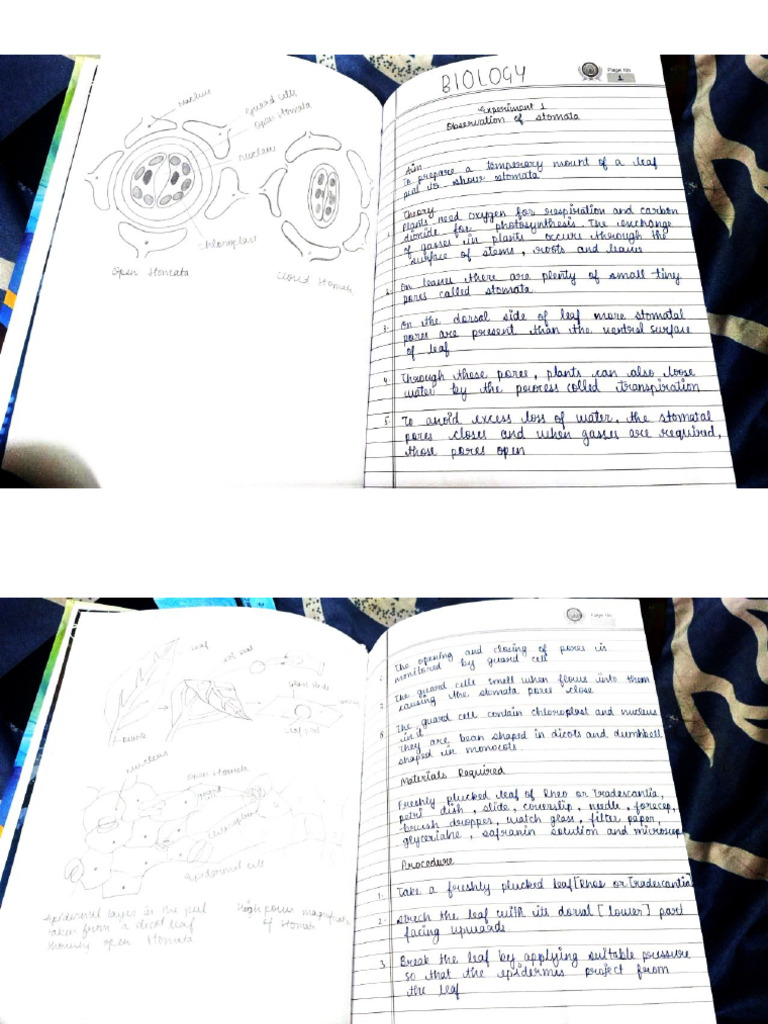 Nucleus
Guard cells
Open stomata
nucleus
chloroplast
Open Stomata
Closed Stomata
BIOLOGY
Page No.
1
Experiment 1
Observation of stomata
Aim
To prepare a temporary mount of a leaf
peal to show stomata
Theory
1. Plants need oxygen for respiration and carbon
dioxide for photosynthesis. The exchange
of gasses in plants occurs through the
surface of stems, roots and leaves
2. On leaves there are plenty of small tiny
pores called stomata
3. On the dorsal side of leaf more stomatal
pores are present than the ventral surface
of leaf
4. Through these pores, plants can also loose
water by the process called transpiration
5. To avoid excess loss of water, the stomatal
pores closes and when gasses are required,
those pores open
leaf
Glass slide
Leaf peal
Nucleus
Open Stomata
guard
chloroplast
Epidermal cell
Epidermal layer in the peel
taken from a dicot leaf
showing open stomata
High power magnification
of stomata
Page No.
6. The opening and closing of pores is
monitored by guard cell
7. The guard cells swell when flows into them
causing the stomata pores close
8. The guard cell contain chloroplast and nucleus
in it
They are bean shaped in dicots and dumbbell
shaped in monocots.
Materials Required
Freshly plucked leaf of Rheo or Tradescantia,
petri dish, slide, coverslip, needle, forecep,
brush dropper, watch glass, filter paper,
safranin solution and
Procedure
1. Take a freshly plucked leaf [Rheo or Tradescantia]
2. Strech the leaf with its dorsal [lower] part
facing upwards
3. Break the leaf by applying suitable pressure
so that the epidermis project from
the leaf